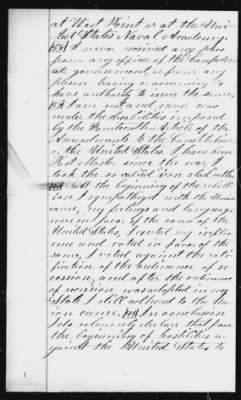 at West Point or at the Uni-
ted States Naval Academy.
I never received any pass
from any officer of the Confeder-
ate government, or from any
person having or assuming to
have authority to issue the same.
I am not and never was
under the disabilities imposed
by the Fourteenth Article of the
Amendments to the Constitution
of the United States. I have been
Post Master since the war, I
took the so called iron clad oath.
At the beginning of the rebell-
ion I sympathized with the Union
cause, my feelings and language
were in favor of the cause of the
United States, I exerted my influ-
ence and voted in favor of the
same, I voted against the rati-
fication of the ordinance of se-
cession, and after the ordinance
of secession was adopted in my
State I still adhered to the Un-
ion cause. In conclusion
I do solemnly declare that from
the beginning of hostilities a-
gainst the United States to